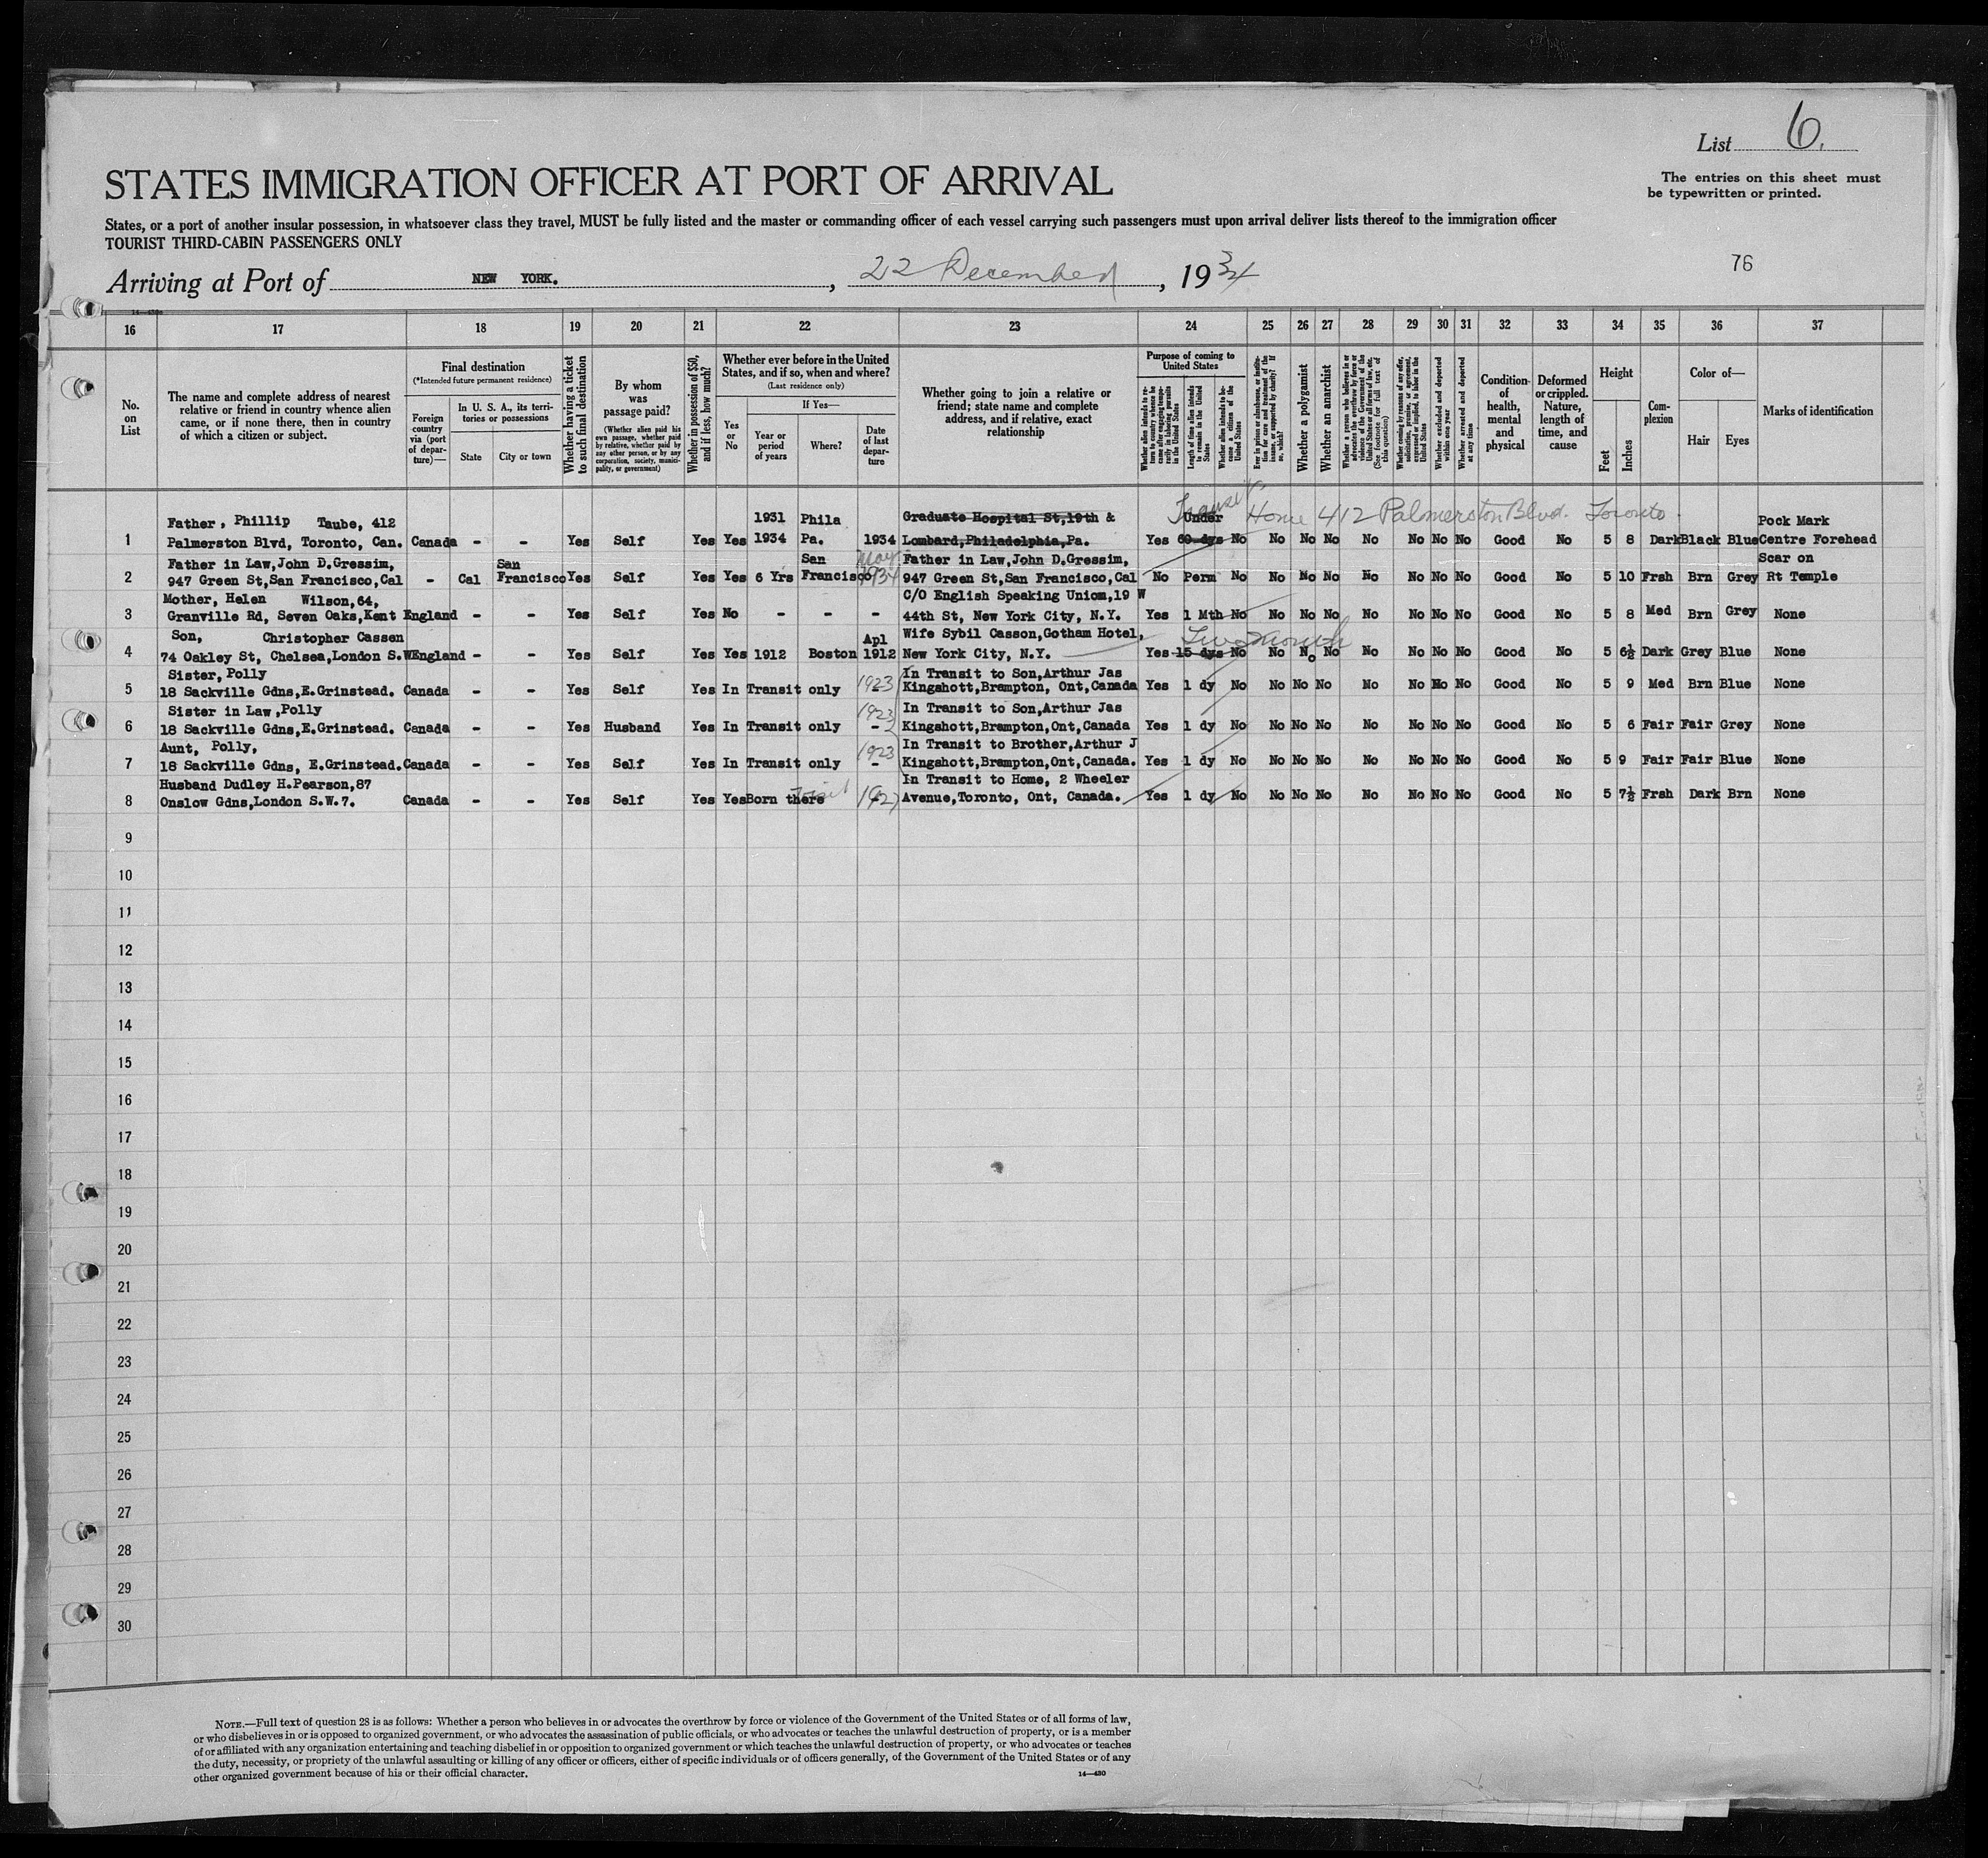 List 6.
The entries on this sheet must
be typewritten or printed.
STATES IMMIGRATION OFFICER AT PORT OF ARRIVAL
States, or a port of another insular possession, in whatsoever class they travel, MUST be fully listed and the master or commanding officer of each vessel carrying such passengers must upon arrival deliver lists thereof to the immigration officer
TOURIST THIRD-CABIN PASSENGERS ONLY
76
Arriving at Port of NEW YORK. , 22 December , 1934
16 17 18 19 20 21 22 23 24 25 26 27 28 29 30 31 32 33 34 35 36 37
No. on List
The name and complete address of nearest
relative or friend in country whence alien
came, or if none there, then in country
of which a citizen or subject.
Final destination
(*Intended future permanent residence)
Foreign country via (port of departure)—
In U. S. A., its territories or possessions
State
City or town
Whether having a ticket to such final destination
By whom was passage paid?
(Whether alien paid his own passage, whether paid by relative, whether paid by any other person, or by any corporation, society, municipality, or government)
Whether in possession of $50, and if less, how much?
Whether ever before in the United States, and if so, when and where?
(Last residence only)
Yes or No
If Yes—
Year or period of years
Where?
Date of last departure
Whether going to join a relative or
friend; state name and complete
address, and if relative, exact
relationship
Purpose of coming to United States
Whether alien intends to return to country whence he came after engaging temporarily in laboring pursuits in the United States
Length of time alien intends to remain in the United States
Whether alien intends to become a citizen of the United States
Ever in prison or almshouse, or institution for care and treatment of the insane, or supported by charity? If so, which?
Whether a polygamist
Whether an anarchist
Whether a person who believes in or advocates the overthrow by force or violence of the Government of the United States or all forms of law, etc. (See footnote for full text of this question)
Whether coming by reasons of any offer, solicitation, promise, or agreement, expressed or implied, to labor in the United States
Whether excluded and deported within one year
Whether arrested and deported at any time
Condition of health, mental and physical
Deformed or crippled. Nature, length of time, and cause
Height
Feet
Inches
Complexion
Color of—
Hair
Eyes
Marks of identification
Father, Phillip Taube, 412 1931 Phila Graduate Hospital St,19th & Under Transit Home 412 Palmerston Blvd. Toronto. Pock Mark
1 Palmerston Blvd, Toronto, Can. Canada - - Yes Self Yes Yes 1934 Pa. 1934 Lombard,Philadelphia,Pa. Yes 60 dys No No No No No No No No Good No 5 8 Dark Black Blue Centre Forehead
Father in Law,John D.Gressim, San San May Father in Law,John D.Gressim, Scar on
2 947 Green St,San Francisco,Cal - Cal Francisco Yes Self Yes Yes 6 Yrs Francisco 1934 947 Green St,San Francisco,Cal No Perm No No No No No No No No Good No 5 10 Frsh Brn Grey Rt Temple
Mother, Helen Wilson,64, C/O English Speaking Union,19 W
3 Granville Rd, Seven Oaks,Kent England - - Yes Self Yes No - - - 44th St, New York City, N.Y. Yes 1 Mth No No No No No No No No Good No 5 8 Med Brn Grey None
Son, Christopher Cassen Apl Wife Sybil Casson,Gotham Hotel, Two months
4 74 Oakley St, Chelsea,London S.W England - - Yes Self Yes Yes 1912 Boston 1912 New York City, N.Y. Yes 15 dys No No No No No No No No Good No 5 6½ Dark Grey Blue None
Sister, Polly 1923 In Transit to Son,Arthur Jas
5 18 Sackville Gdns,E.Grinstead. Canada - - Yes Self Yes In Transit only - Kingshott,Brampton, Ont,Canada Yes 1 dy No No No No No No No No Good No 5 9 Med Brn Blue None
Sister in Law,Polly 1923 In Transit to Son,Arthur Jas
6 18 Sackville Gdns,E.Grinstead. Canada - - Yes Husband Yes In Transit only - Kingshott,Brampton,Ont,Canada Yes 1 dy No No No No No No No No Good No 5 6 Fair Fair Grey None
Aunt, Polly, 1923 In Transit to Brother,Arthur J
7 18 Sackville Gdns, E.Grinstead. Canada - - Yes Self Yes In Transit only - Kingshott,Brampton,Ont,Canada. Yes 1 dy No No No No No No No No Good No 5 9 Fair Fair Blue None
Husband Dudley H.Pearson,87 In Transit to Home, 2 Wheeler
8 Onslow Gdns,London S.W.7. Canada - - Yes Self Yes Yes Born there 1927 Avenue,Toronto, Ont, Canada. Yes 1 dy No No No No No No No No Good No 5 7½ Frsh Dark Brn None
9
10
11
12
13
14
15
16
17
18
19
20
21
22
23
24
25
26
27
28
29
30
NOTE.—Full text of question 28 is as follows: Whether a person who believes in or advocates the overthrow by force or violence of the Government of the United States or of all forms of law,
or who disbelieves in or is opposed to organized government, or who advocates the assassination of public officials, or who advocates or teaches the unlawful destruction of property, or is a member
of or affiliated with any organization entertaining and teaching disbelief in or opposition to organized government or which teaches the unlawful destruction of property, or who advocates or teaches
the duty, necessity, or propriety of the unlawful assaulting or killing of any officer or officers, either of specific individuals or of officers generally, of the Government of the United States or of any
other organized government because of his or their official character.
14—430